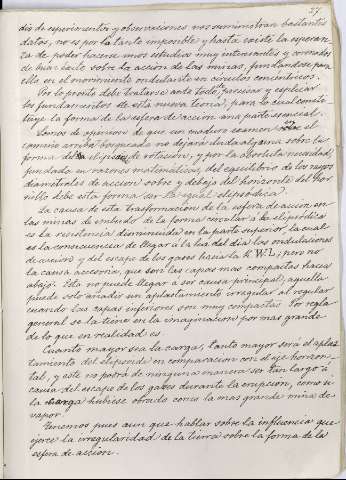 37
dio de esperimentos y observaciones nos suministran bastantes
datos, no es por lo tanto imposible y hasta existe la esperan-
za de poder hacerse unos estudios muy interesantes y coronados
de buen éxito sobre la acción de las minas, fundándose para
ello en el movimiento ondulante en círculos concéntricos.
Por lo pronto debe tratarse ante todo precisar y explicar
los fundamentos de esta nueva teoría, para lo cual consti-
tuye la forma de la esfera de acción una parte esencial.
Somos de opinión de que un maduro examen sobre el
camino arriba bosquejado no dejará duda alguna sobre la
forma del elipsoide de rotación, y por la absoluta necesidad,
fundada en razones matemáticas, del equilibrio de los rayos
diametrales de acción sobre y debajo del horizonte del hor-
nillo debe esta forma ser la igual elipsoidica.
La causa de esta trasformación de la esfera de acción en
las minas de embudo de la forma circular á la elipsódica
es la resistencia disminuida en la parte superior, la cual
es la consecuencia de llegar á la luz del dia las ondulaciones
de acción y del escape de los gases hasta la K. W. L., pero no
la causa accesoria, que son las capas mas compactas hacia
abajo. Esta no puede llegar á ser causa principal; aquella
puede solo añadir un aplastamiento irregular al regular
cuando las capas inferiores son muy compactas. Por regla
general se la tiene en la imaginación por mas grande
de lo que en realidad es.
Cuanto mayor sea la carga, tanto mayor será el aplas-
tamiento del elipsoide en comparación con el eje horizon-
tal, y este no podrá de ninguna manera ser tan largo á
causa del escape de los gases durante la erupción, como si
la carga hubiese obrado como la mas grande mina de
vapor.
Tenemos pues aun que hablar sobre la influencia que
ejerce la irregularidad de la tierra sobre la forma de la
esfera de acción.